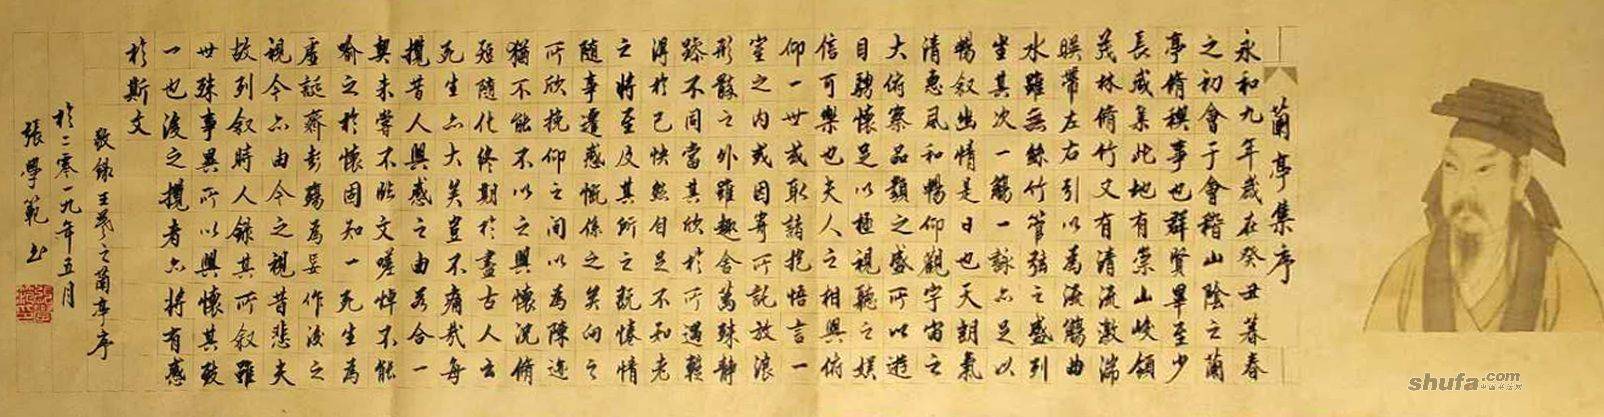 蘭亭集序
永和九年歲在癸丑暮春
之初會于會稽山陰之蘭
亭脩稧事也群賢畢至少
長咸集此地有崇山峻領
茂林脩竹又有清流激湍
暎帶左右引以為流觴曲
水雖無絲竹管弦之盛列
坐其次一觴一詠亦足以
暢叙幽情是日也天朗氣
清惠風和暢仰觀宇宙之
大俯察品類之盛所以遊
目騁懷足以極視聽之娛
信可樂也夫人之相與俯
仰一世或取諸抱悟言一
室之內或因寄所託放浪
形骸之外雖趣舍萬殊靜
躁不同當其欣於所遇
得於己快然自足不知老
之將至及其所之既惓情
隨事遷感慨係之矣向之
所欣俛仰之間以為陳迹
猶不能不以之興懷況脩
短隨化終期於盡古人云
死生亦大矣豈不痛哉每
攬昔人興感之由若合一
契未嘗不臨文嗟悼不能
喻之於懷固知一死生為
虛誕齊彭殤為妄作後之
視今亦由今之視昔悲夫
故列叙時人錄其所叙雖
世殊事異所以興懷其致
一也後之攬者亦將有感
於斯文
敬錄王羲之蘭亭序
於二零一九年五月
張學範書
shufa.com